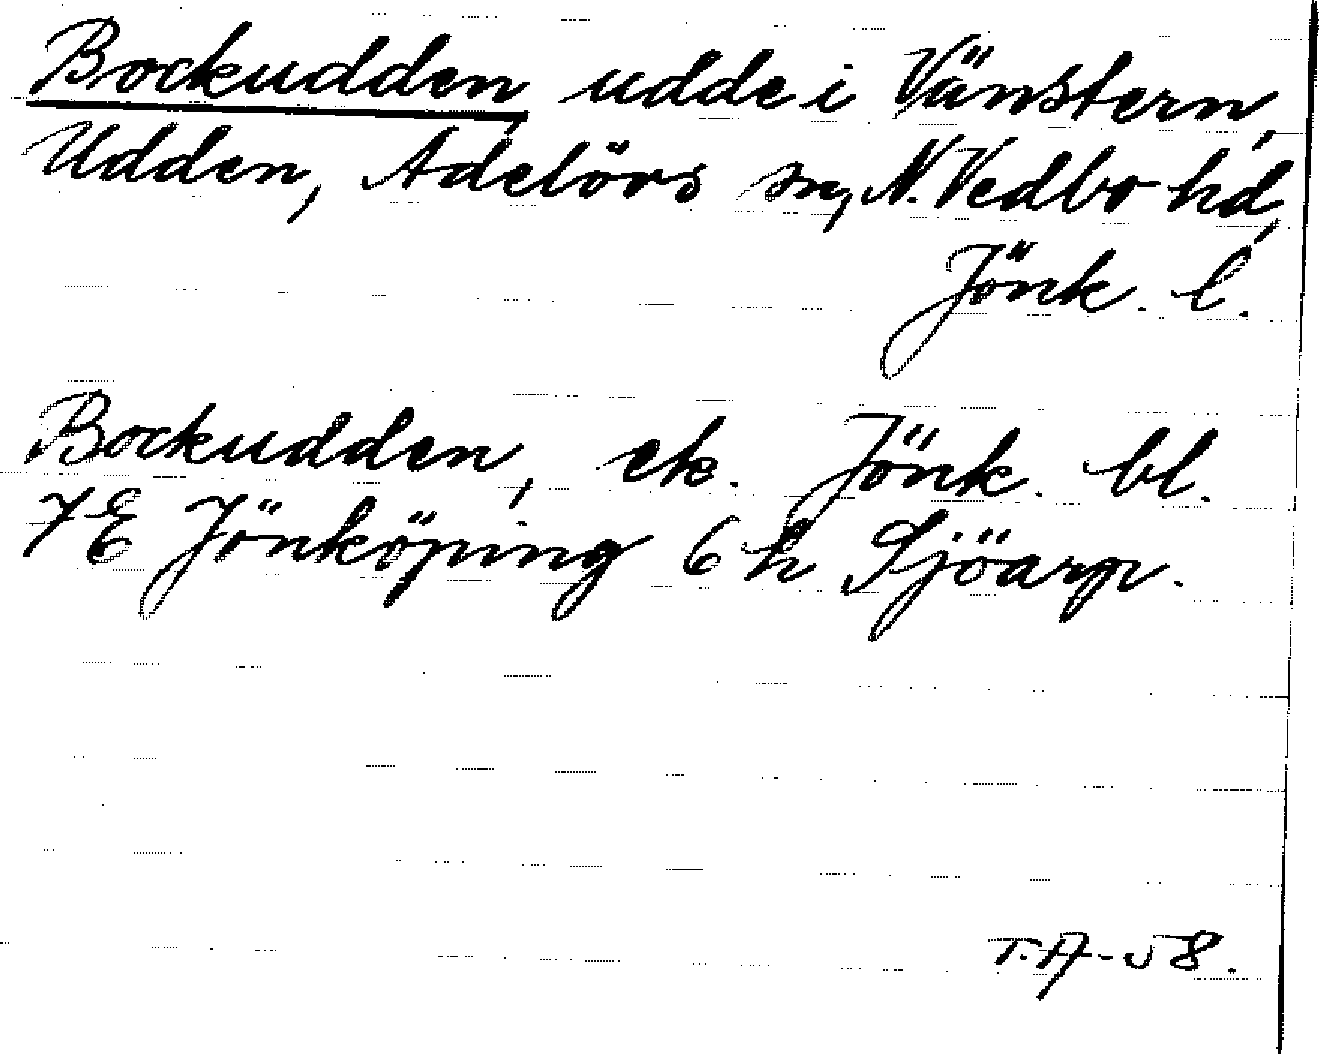 Bockudden, udde i Vänstern,
Udden, Adelövs sn, N. Vedbo hd,
Jönk. l.
Bockudden, ek. Jönk. bl.
7E Jönköping 6 h Sjöarp.
T.A-58.